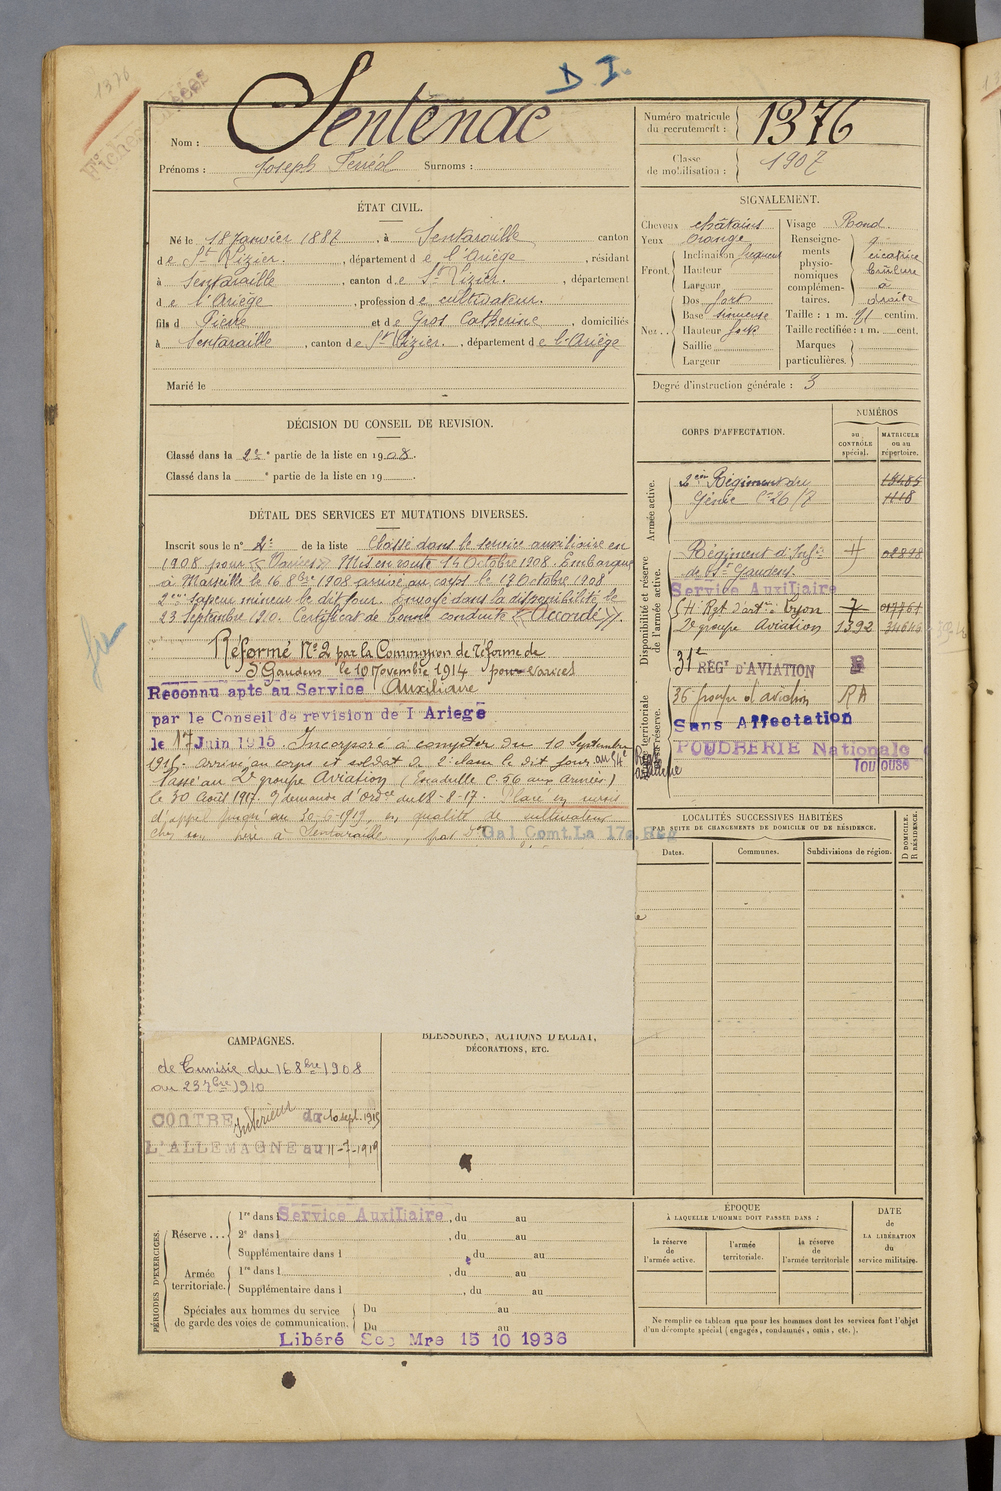 1376
D I.
Nom : Sentenac
Prénoms : Joseph Ferréol Surnoms :
Numéro matricule du recrutement : 1376
Classe de mobilisation : 1907
ÉTAT CIVIL.
Né le 18 Janvier 1887, à Sentaraille canton
de St Lizier, département de l'Ariège, résidant
à Sentaraille, canton de St Lizier, département
de l'Ariège, profession de cultivateur.
fils d Pierre et de Gros Catherine, domiciliés
à Sentaraille, canton de St Lizier, département de l'Ariège
Marié le
SIGNALEMENT.
Cheveux châtains
Yeux orange
Front. Inclinaison
Hauteur
Largeur
Nez.. Dos fort
Base sinueuse
Hauteur fort
Saillie
Largeur
Visage Rond.
Renseignements physionomiques complémentaires. cicatrice brûlure à droite
Taille : 1 m. 71 centim.
Taille rectifiée : 1 m. cent.
Marques particulières.
Degré d'instruction générale : 3
DÉCISION DU CONSEIL DE REVISION.
Classé dans la 2e partie de la liste en 1908.
Classé dans la e partie de la liste en 19 .
DÉTAIL DES SERVICES ET MUTATIONS DIVERSES.
Inscrit sous le n° 2 de la liste Classé dans le service auxiliaire en
1908 pour « Varices » Mis en route 14 Octobre 1908. Embarqué
à Marseille le 16 8bre 1908 arrivé au corps le 18 Octobre 1908
2eme sapeur mineur le dit jour. Envoyé dans la disponibilité le
23 Septembre 1910. Certificat de bonne conduite « Accordé ».
Réformé N°2 par la Commission de réforme de
St Gaudens le 10 Novembre 1914 pour varices
Reconnu apte au Service Auxiliaire
par le Conseil de revision de l Ariege
le 17 Juin 1915. Incorporé à compter du 10 Septembre
1915. Arrivé au corps et soldat de 2e classe le dit jour au 54e
Passé au 2e groupe Aviation (Escadrille C. 56 aux Armées)
le 30 Août 1917. demande d'ordre du 18-8-17. Placé en sursis
d'appel jusqu'au 30-6-1919, en qualité de cultivateur
chez son père à Sentaraille par Don Gal Comt. La 17e Reg
CORPS D'AFFECTATION.
NUMÉROS
au CONTRÔLE spécial.
MATRICULE ou au répertoire.
Armée active.
2eme Régiment du 18485
Génie Cie 26/7 1118
Disponibilité et réserve de l'armée active.
Régiment d'Infie
de St Gaudens.
Service Auxiliaire
54 Rgt d'artie à Lyon 7
2e groupe Aviation 1392 34643
31e REGt D'AVIATION
Armée territoriale et sa réserve.
36 groupe d'aviation R A
Sans Affectation
POUDRERIE Nationale
Toulouse
LOCALITÉS SUCCESSIVES HABITÉES
PAR SUITE DE CHANGEMENTS DE DOMICILE OU DE RÉSIDENCE.
Dates.
Communes.
Subdivisions de région.
D DOMICILE. R RÉSIDENCE.
CAMPAGNES.
de Tunisie du 16 8bre 1908
au 23 7bre 1910
CONTRE Intérieur du 10 sept. 1915
L'ALLEMAGNE au 11-7-1919
BLESSURES, ACTIONS D'ÉCLAT,
DÉCORATIONS, ETC.
PÉRIODES D'EXERCICES.
Réserve ...
1re dans l Service Auxiliaire, du au
2e dans l , du au
Supplémentaire dans l du au
Armée territoriale.
1re dans l , du au
Supplémentaire dans l , du au
Spéciales aux hommes du service de garde des voies de communication.
Du au
Du au
Libéré Sce Mre 15 10 1936
ÉPOQUE
À LAQUELLE L'HOMME DOIT PASSER DANS :
la réserve de l'armée active.
l'armée territoriale.
la réserve de l'armée territoriale
DATE de LA LIBÉRATION du service militaire.
Ne remplir ce tableau que pour les hommes dont les services font l'objet
d'un décompte spécial (engagés, condamnés, omis, etc.).